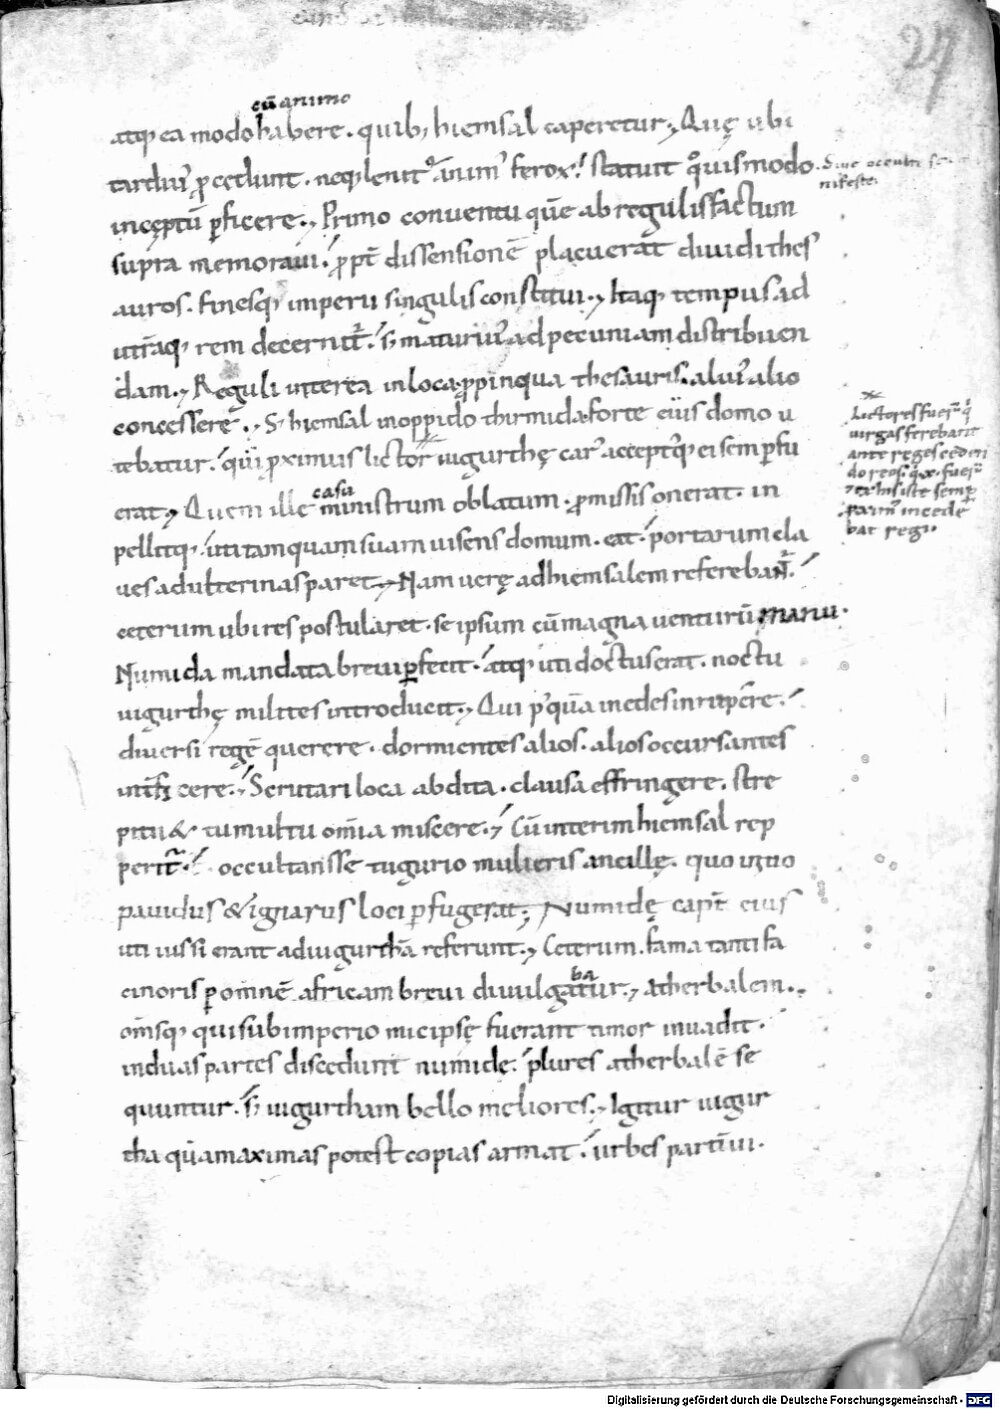 24
cū animo
atq; ea modo habere. quib; hiemsal caperetur; Quę ubi
tardius p̄cedunt. neq; lenit̄ animus ferox! statuit quouismodo
Siue occulte se
nifeste
incęptū pficere; Primo conuentu quē ab regulis factum
supra memoraui! ppt̄ dissensionē placuerat diuidi thes
auros. finesq; imperii singulis constitui; Itaq; tempus ad
utrāq; rem decernit̄! s; maturius ad pecuniam distribuen
dam; Reguli interea in loca ppinqua thesauris. alius alio
concessere; S; hiemsal in oppido thirmida. forte eius domo u
tebatur! qui pximus lictor iugurthę carus acceptusq; ei semp fu
erat; Quem ille casu ministrum oblatum. pmissis onerat. in
pellitq; uti tamquam suam uisens domum. eat! portarum cla
ues adulterinas paret; Nam uerę ad hiemsalem referebant̄!
ceterum ubi res postularet. se ipsum cū magna venturū manu.
Lictores fuer̄ q̄
uirgas ferebant
ante reges ceden
do reos. q̄ .x. fuer̄
ex his iste semp
parim̄ incede
bat regi
Numida mandata breui pfecit! atq; uti doctus erat. noctu
iugurthę milites introducit; Qui pquā in edes inrupēre!
diuersi regē querere. dormientes alios. alios occursantes
int̄ficere; Scrutari loca abdita. clausa effringere. stre
pitu & tumultu om̄ia miscere; Cū interim hiemsal rep
perit̄! occultans se tugurio mulieris ancillę. quo initio
pauidus & ignarus loci pfugerat; Numidę capt̄ eius
uti iussi erant ad iugurthā referunt; Ceterum. fama tanti fa
cinoris p omnē africam breui diuulgabatur; Atherbalem.
om̄sq; qui sub imperio micipsę fuerant timor inuadit.
in duas partes discedunt numidę! plures atherbalē se
quuntur! s; iugurtham bello meliores; Igitur iugur
tha quā maximas potest copias armat! urbes partim ui.
Digitalisierung gefördert durch die Deutsche Forschungsgemeinschaft - DFG